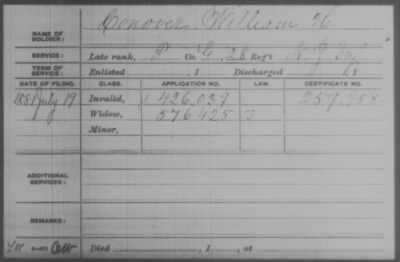 NAME OF SOLDIER: Conover William H
SERVICE: Late rank, P Co. G, 28 Reg't N.J. Inf
TERM OF SERVICE: Enlisted , 1 Discharged , 1
DATE OF FILING. CLASS. APPLICATION NO. LAW. CERTIFICATE NO.
1881 July 19 Invalid, 426,039
Widow, 576425
Minor,
ADDITIONAL SERVICES:
REMARKS:
Died , 1 , at